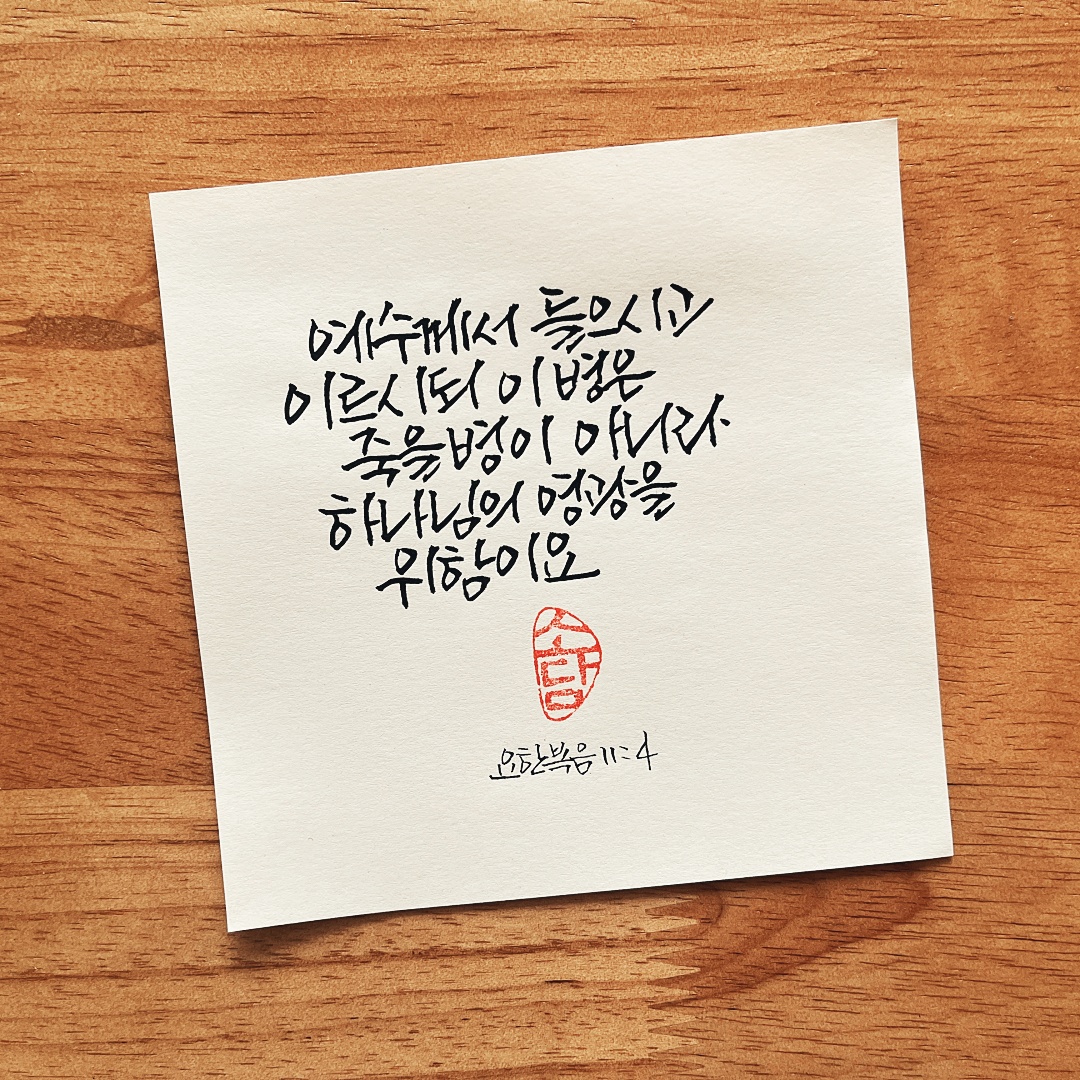 예수께서 들으시고
이르시되 이 병은
죽을병이 아니라
하나님의 영광을
위함이요
소망
요한복음 11:4